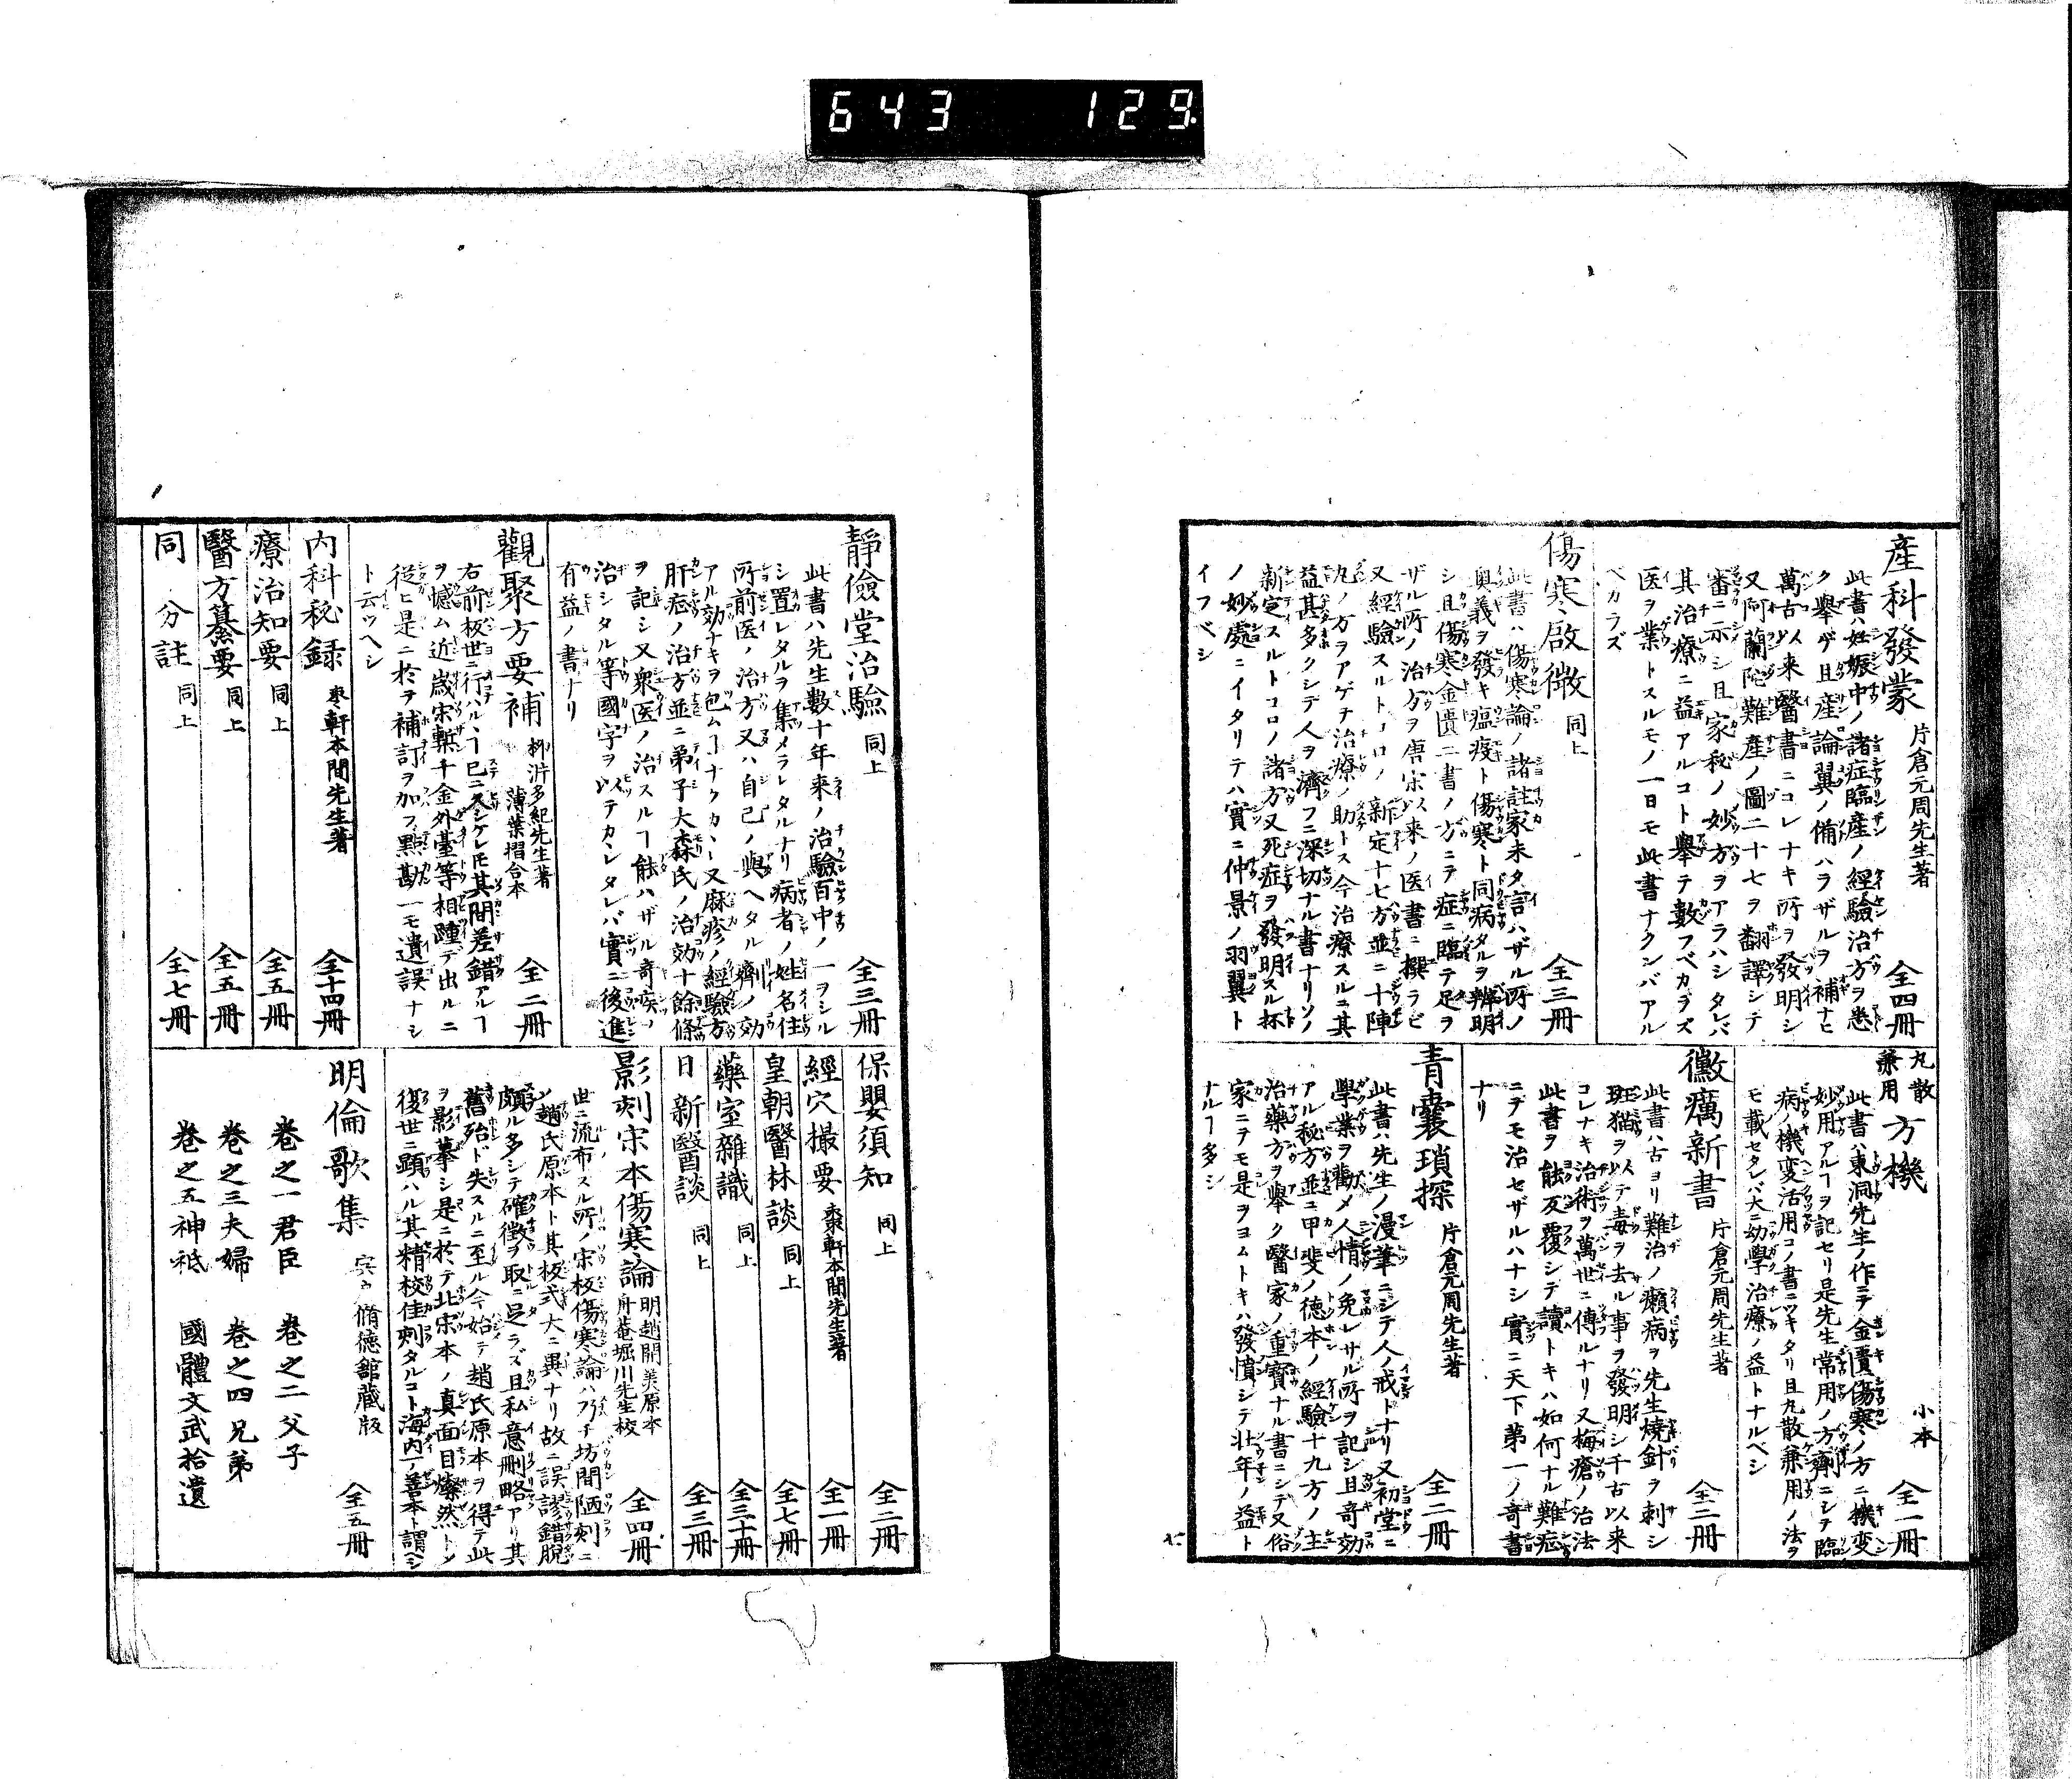 643 129
産科發蒙 片倉元周先生著 全四冊
此書ハ妊娠中ノ諸症臨産ノ經驗治方ヲ悉
ク舉ゲ且産論翼ノ備ハラザルヲ補ナヒ
萬古以来醫書ニコレナキ所ヲ發明シ
又阿蘭陀難産ノ圖二十七ヲ翻譯シテ
審ニ示シ且家秘ノ妙方ヲアラハシタレバ
其治療ニ益アルコト舉テ數フベカラズ
医ヲ業トスルモノ一日モ此書ナクンバアル
ベカラズ
傷寒啟微 同上 全三冊
此書ハ傷寒論ノ諸註家未タ言ハザル所ノ
奥義ヲ發キ瘟疫ト傷寒ト同病タルヲ辨明
シ且傷寒金匱二書ノ方ニテ症ニ臨テ足ラ
ザル所ノ治方ヲ唐宋以来ノ医書ニ撰ラビ
又經驗スルトコロノ新定十七方並ニ十陣
丸ノ方ヲアゲテ治療ノ助トス今治療スルニ其
益甚多クシテ人ヲ濟フニ深切ナル書ナリソノ
新定スルトコロノ諸方又死症ヲ發明スル抔
ノ妙處ニイタリテハ實ニ仲景ノ羽翼ト
イフベシ
丸散兼用 方機 小本 全一冊
此書ハ東洞先生ノ作ニテ金匱傷寒ノ方ニ機変
妙用アルヿヲ記セリ是先生常用ノ方劑ニシテ臨
病ノ機変活用コノ書ニツキタリ且丸散兼用ノ法ヲ
モ載セタレバ大ニ幼學治療ノ益トナルベシ
黴癘新書 片倉元周先生著 全二冊
此書ハ古ヨリ難治ノ癩病ヲ先生燒針ヲ刺シ
斑猫ヲ以テ毒ヲ去ル事ヲ發明シ千古以来
コレナキ治術ヲ萬世ニ傳ルナリ又梅瘡ノ治法
此書ヲ能反覆シテ讀トキハ如何ナル難症
ニテモ治セザルハナシ實ニ天下第一ノ奇書
ナリ
青嚢瑣探 片倉元周先生著 全二冊
此書ハ先生ノ漫筆ニシテ人ノ戒トナリ又初堂ニ
學業ヲ勸メ人情ノ免レサル所ヲ記シ且奇効
アル秘方並ニ甲斐ノ徳本ノ經驗十九方ノ主
治藥方ヲ舉ク醫家ノ重寳ナル書ニシテ又俗
家ニテモ是ヲヨムトキハ發憤シテ壮年ノ益ト
ナルヿ多シ
靜儉堂治驗 同上 全三冊
此書ハ先生數十年来ノ治驗百中ノ一ヲシル
シ置レタルヲ集メラレタルナリ病者ノ姓名住
所前医ノ治方又ハ自己ノ與ヘタル劑ノ効
アル効ナキヲ包ムヿナクカヽレ又麻疹ノ經驗方
肝症ノ治方並ニ弟子大森氏ノ治効十餘條
ヲ記シ又衆医ノ治スルヿ能ハザル奇疾ヲ
治シタル等國字ヲ以テカヽレタレバ實ニ後進
有益ノ書ナリ
觀聚方要補 柳沜多紀先生著 薄葉摺合本 全二冊
右前板世ニ行ハルヽヿ已ニ久シケレ𪜈其間差錯アルヿ
ヲ憾ム近歳宋槧千金外臺等相踵テ出ルニ
從ヒ是ニ於ヲ補訂ヲ加フ點勘一モ遺誤ナシ
ト云ツヘシ
内科秘録 枣軒本間先生著 全十四冊
療治知要 同上 全五冊
醫方纂要 同上 全五冊
同 分註 同上 全七冊
保嬰須知 同上 全二冊
經穴撮要 棗軒本間先生著 全一冊
皇朝醫林談 同上 全七冊
藥室雜識 同上 全三十冊
日新醫談 同上 全三冊
影刻宋本傷寒論 明趙開美原本 舟菴堀川先生校 全四冊
世ニ流布スル所ノ宋板傷寒論ハ乃チ坊間陋刻ニ
ソ趙氏原本ト其板式大ニ異ナリ故ニ誤謬錯脱
頗ル多シテ確徴ヲ取ニ足ラズ且私意删略アリ其
舊殆ド失スルニ至ル今始テ趙氏原本ヲ得テ此
ヲ影摹シ是ニ於テ北宋本ノ真面目燦然トソ
復世ニ顕ハル其精校佳刻タルコト海内一ノ善本ト謂ヘシ
明倫歌集 脩徳舘藏版 全五冊
巻之一君臣 巻之二父子
巻之三夫婦 巻之四兄弟
巻之五神祗 國體文武拾遺